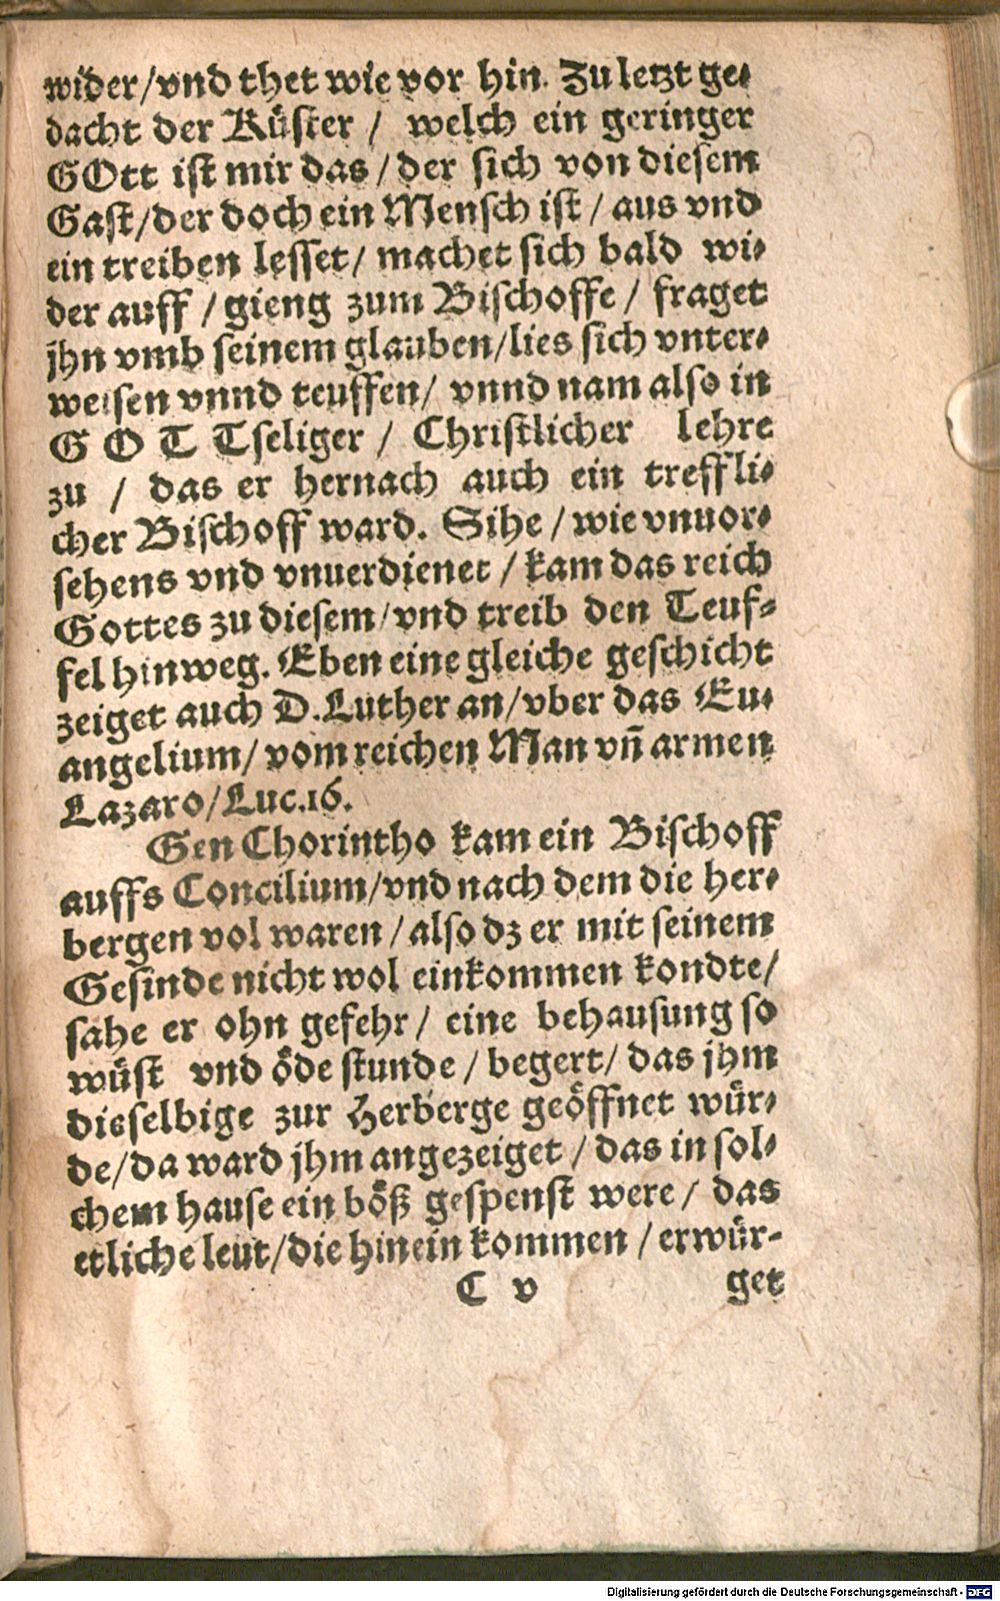 wider/vnd thet wie vor hin. Zu letzt ge⸗
dacht der Küster / welch ein geringer
GOtt ist mir das / der sich von diesem
Gast/der doch ein Mensch ist / aus vnd
ein treiben lesset/ machet sich bald wi⸗
der auff / gieng zum Bischoffe / fraget
jhn vmb seinem glauben/lies sich vnter⸗
weisen vnnd teuffen/ vnnd nam also in
G O T Tseliger / Christlicher lehre
zu / das er hernach auch ein treffli⸗
cher Bischoff ward. Sihe / wie vnuor⸗
sehens vnd vnuerdienet / kam das reich
Gottes zu diesem/vnd treib den Teuf⸗
fel hinweg. Eben eine gleiche geschicht
zeiget auch D.Luther an/vber das Eu⸗
angelium/ vom reichen Man vn̄ armen
Lazaro/Luc.16.
Gen Chorintho kam ein Bischoff
auffs Concilium/vnd nach dem die her⸗
bergen vol waren / also dz er mit seinem
Gesinde nicht wol einkommen kondte/
sahe er ohn gefehr / eine behausung so
wüst vnd öde stunde / begert/ das jhm
dieselbige zur Herberge geöffnet wür⸗
de/da ward jhm angezeiget / das in sol⸗
chem hause ein böß gespenst were / das
etliche leut/die hinein kommen / erwür⸗
C v get
Digitalisierung gefördert durch die Deutsche Forschungsgemeinschaft - DFG